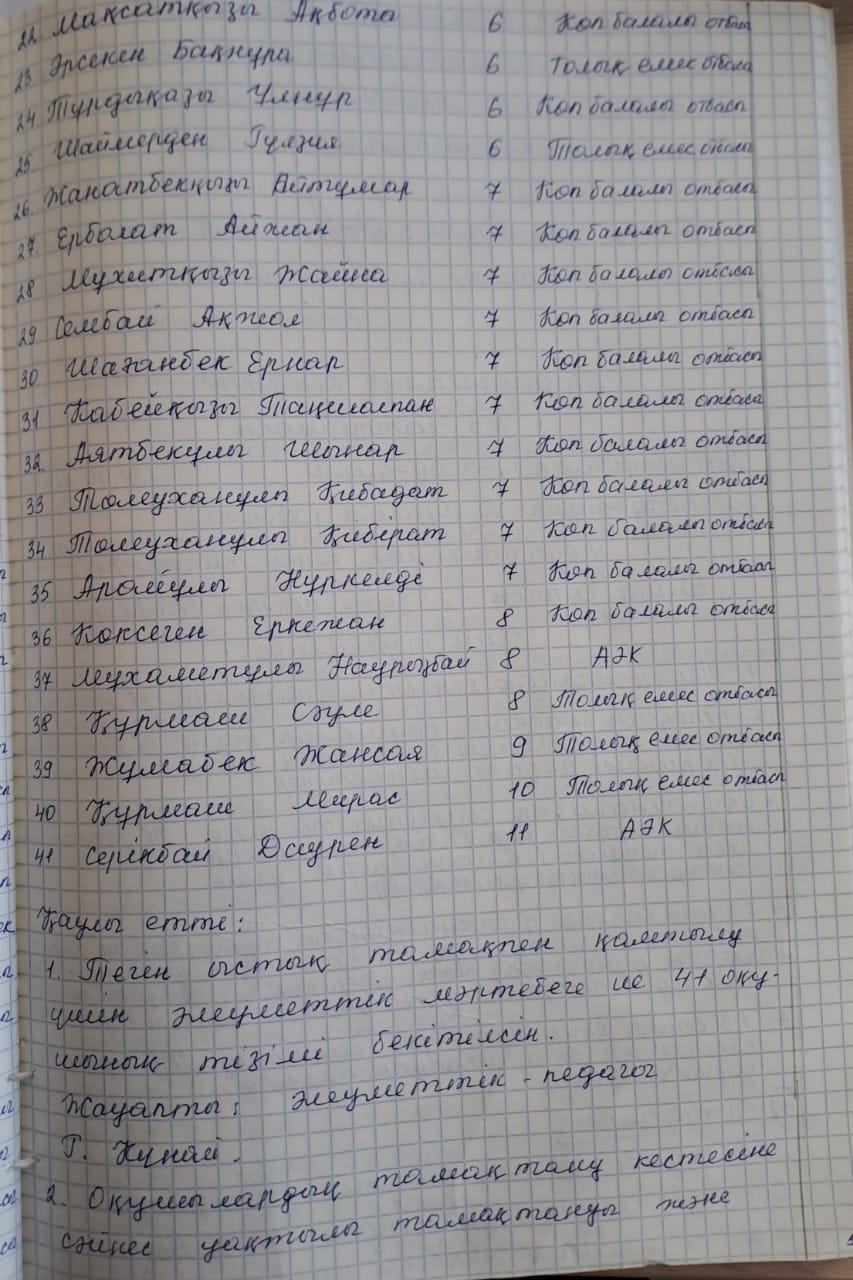 22. Мақсатқызы Ақбота 6 Көп балалы отбасы
23 Әрсекен Бақнұра 6 Толық емес отбасы
24. Тұрдықазы Ұлнұр 6 Көп балалы отбасы
25 Шаймерден Гүлзия 6 Толық емес отбасы
26. Жанатбекқызы Айтумар 7 Көп балалы отбасы
27 Ерболат Айжан 7 Көп балалы отбасы
28 Мухитқызы Жайна 7 Көп балалы отбасы
29 Сембай Ақжол 7 Көп балалы отбасы
30 Шағанбек Ернар 7 Көп балалы отбасы
31 Кабейқызы Таңшолпан 7 Көп балалы отбасы
32. Аятбекулы Шыңар 7 Көп балалы отбасы
33 Толеуханулы Қибадат 7 Көп балалы отбасы
34 Толеуханулы Қибірат 7 Көп балалы отбасы
35 Нұркелді 7 Көп балалы отбасы
36 Көксеген Еркежан 8 Көп балалы отбасы
37 Мухаметулы Наурызбай 8 АӘК
38 Құрмаш Сәуле 8 Толық емес отбасы
39 Жумабек Жансая 9 Толық емес отбасы
40 Құрмаш Мирас 10 Толық емес отбасы
41 Серікбай Дәурен 11 АӘК
Қаулы етті:
1. Тегін ыстық тамақпен қамтылу
үшін әлеуметтік мәртебеге ие 41 оқу-
шының тізімі бекітілсін.
Жауапты: әлеуметтік-педагог
Г. Күнай.
2. Оқушылардың тамақтану кестесіне
сәйкес уақтылы тамақтануы және